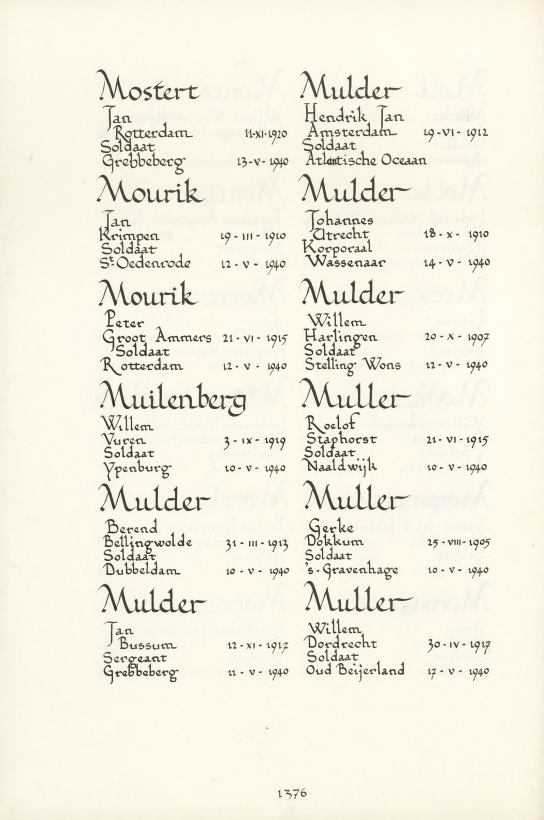 Mostert
Jan
Rotterdam 11-XI-1920
Soldaat
Grebbeberg 13-V-1940
Mourik
Jan
Krimpen 19-III-1910
Soldaat
St Oedenrode 12-V-1940
Mourik
Peter
Groot Ammers 21-VI-1915
Soldaat
Rotterdam 12-V-1940
Muilenberg
Willem
Vuren 3-IX-1919
Soldaat
Ypenburg 10-V-1940
Mulder
Berend
Bellingwolde 31-III-1913
Soldaat
Dubbeldam 10-V-1940
Mulder
Jan
Bussum 12-XI-1917
Sergeant
Grebbeberg 11-V-1940
Mulder
Hendrik Jan
Amsterdam 19-VI-1912
Soldaat
Atlantische Oceaan
Mulder
Johannes
Utrecht 18-X-1910
Korporaal
Wassenaar 14-V-1940
Mulder
Willem
Harlingen 20-X-1907
Soldaat
Stelling Wons 12-V-1940
Muller
Roelof
Staphorst 21-VI-1915
Soldaat
Naaldwijk 10-V-1940
Muller
Gerke
Dokkum 25-VIII-1905
Soldaat
's-Gravenhage 10-V-1940
Muller
Willem
Dordrecht 30-IV-1917
Soldaat
Oud Beijerland 17-V-1940
1376